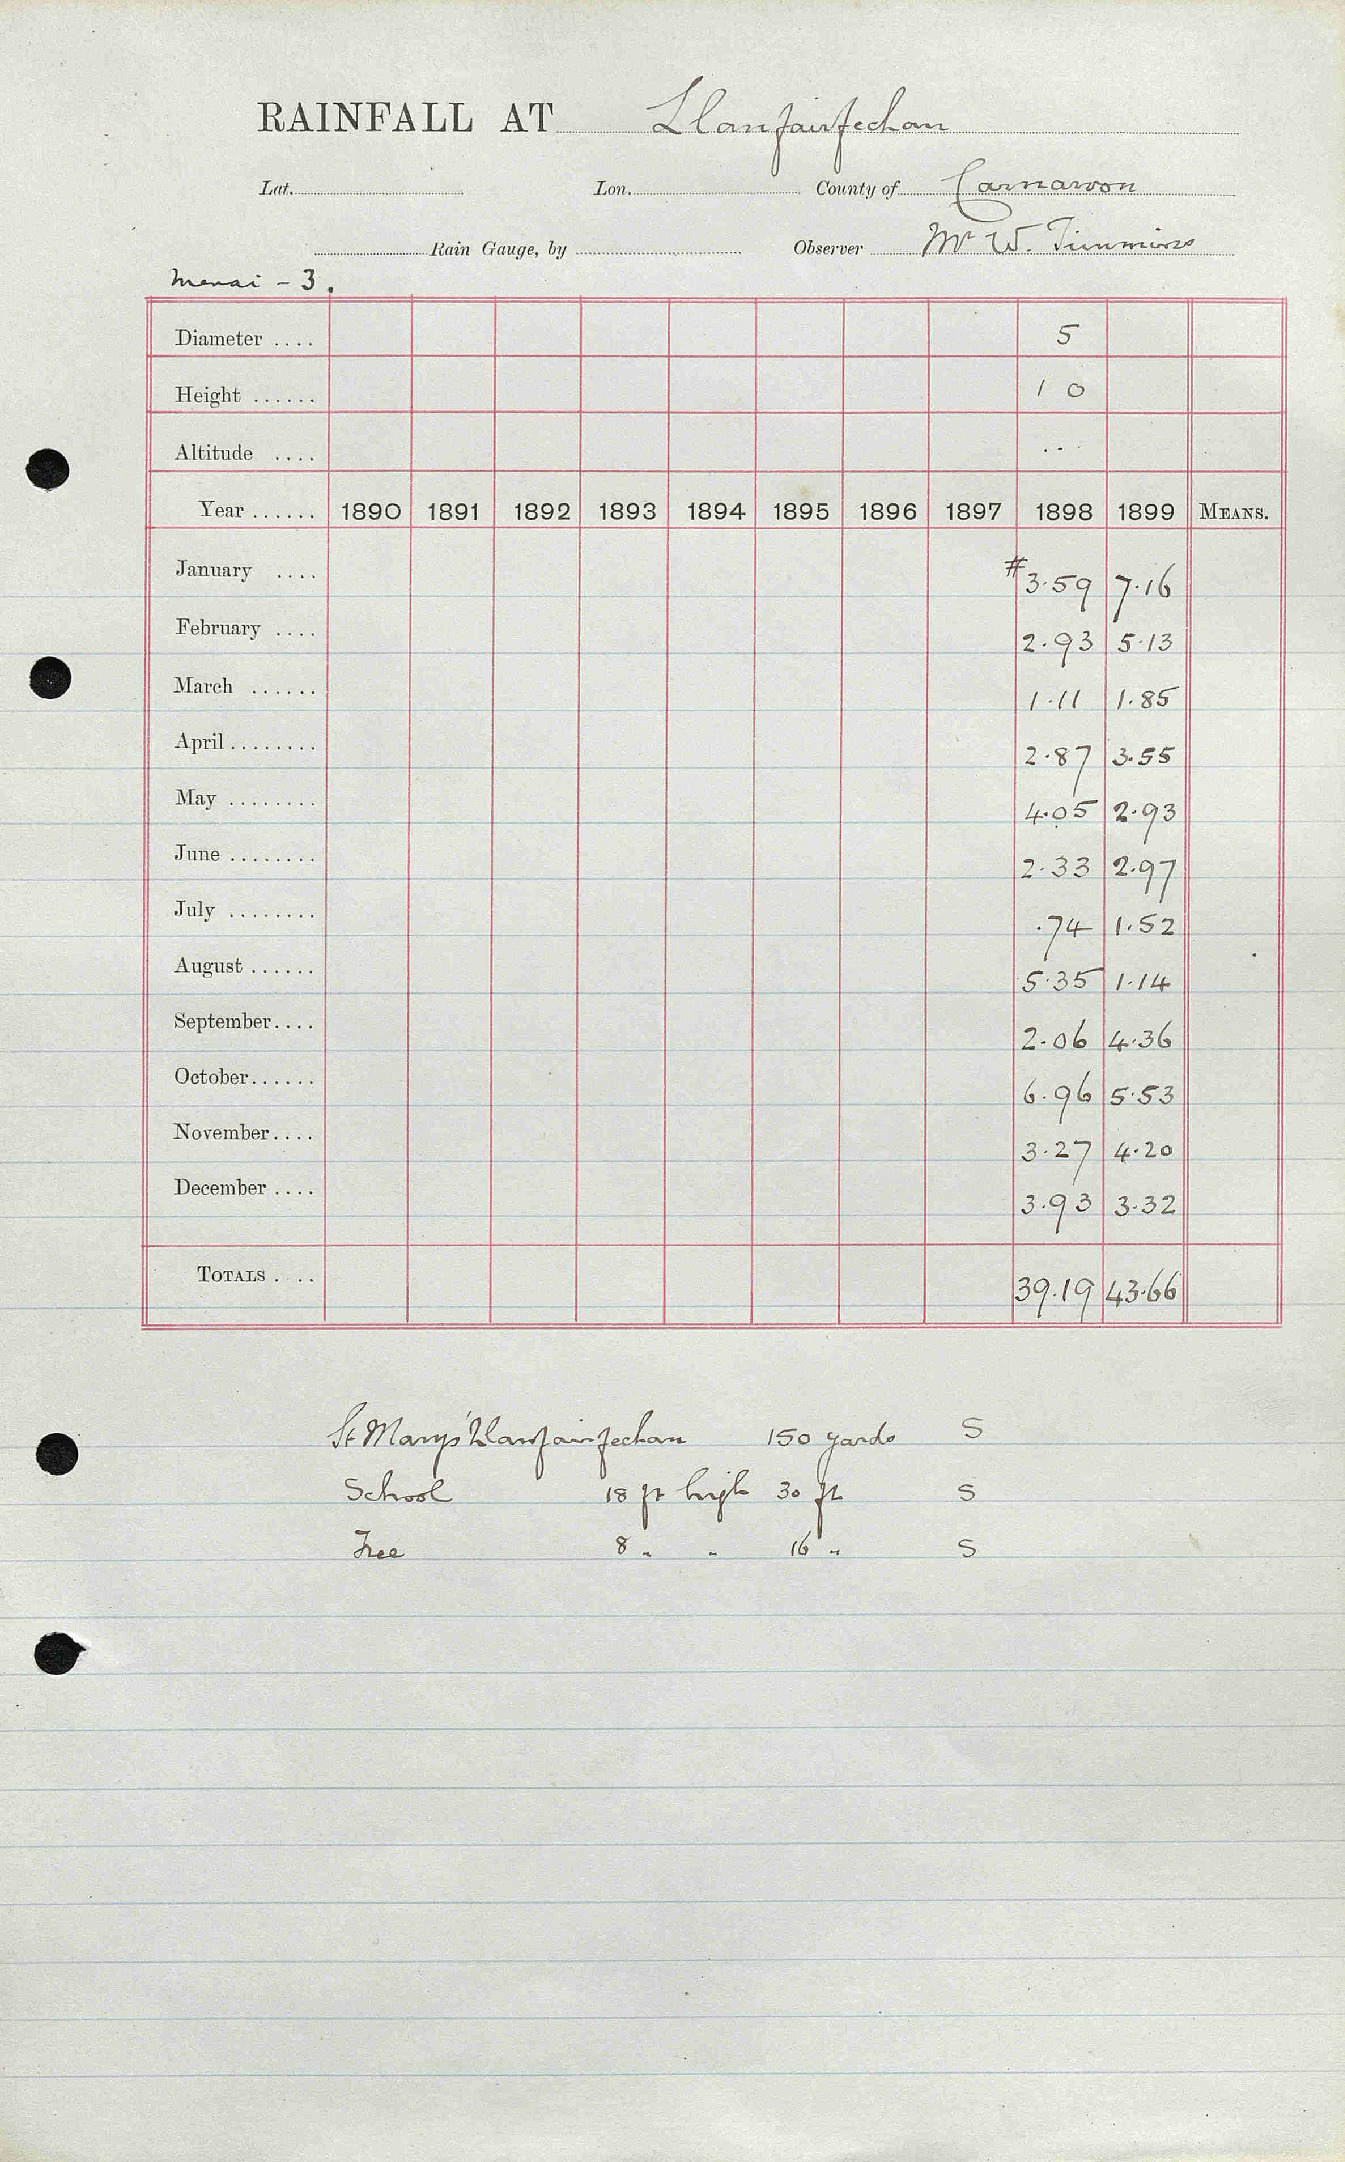 RAINFALL AT Llanfairfechan
Lat. Lon. County of Carnarvon
Rain Gauge, by Observer Mr W. Timmins
Menai - 3.
Diameter .... 5
Height ...... 1 0
Altitude .... ...
Year ...... 1890 1891 1892 1893 1894 1895 1896 1897 1898 1899 MEANS.
January .... #3.59 7.16
February .... 2.93 5.13
March ...... 1.11 1.85
April ........ 2.87 3.55
May ........ 4.05 2.93
June ........ 2.33 2.97
July ........ .74 1.52
August ...... 5.35 1.14
September.... 2.06 4.36
October...... 6.96 5.53
November.... 3.27 4.20
December .... 3.93 3.32
TOTALS .... 39.19 43.66
St Mary's Llanfairfechan 150 yards S
School 18 ft high 30 ft S
Tree 8 " " 16 " S